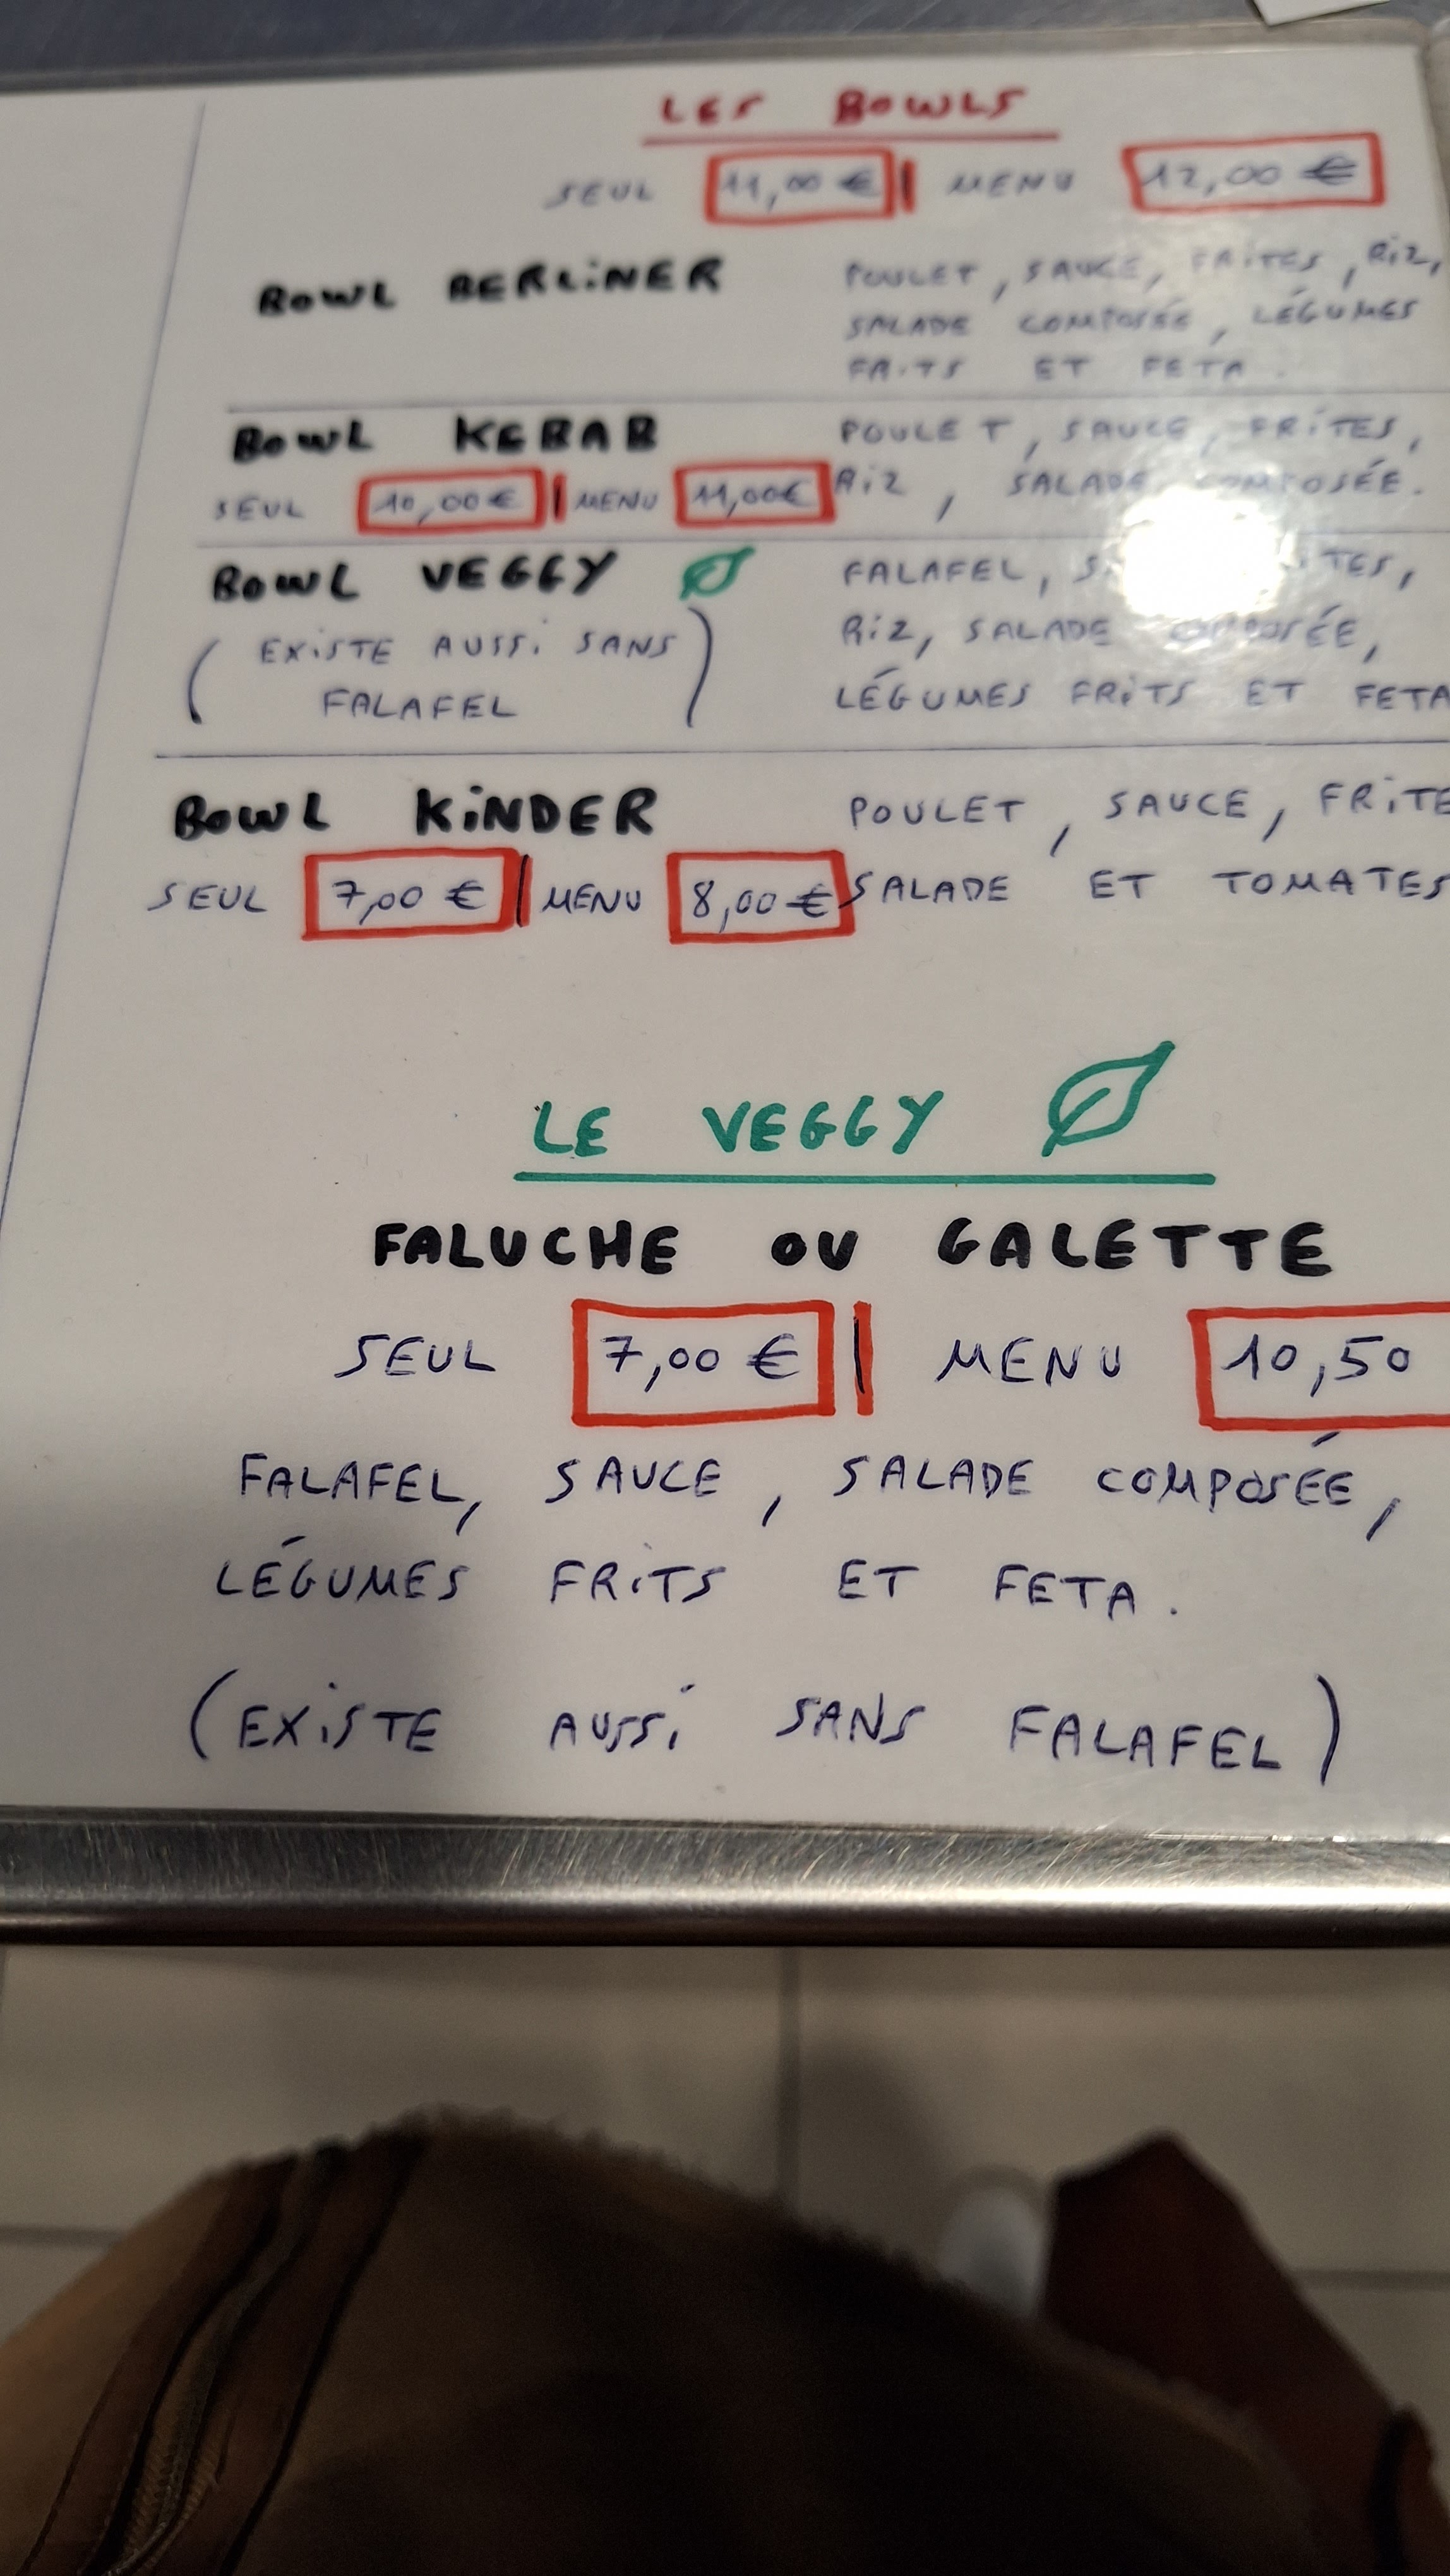 LES BOWLS
SEUL 11,00 € | MENU 12,00 €
BOWL BERLINER
POULET, SAUCE, FRITES, RIZ,
SALADE COMPOSÉE, LÉGUMES
FRITS ET FETA.
BOWL KEBAB
SEUL 10,00€ | MENU 11,00€
POULET, SAUCE, FRITES,
RIZ, SALADE COMPOSÉE.
BOWL VEGGY
(EXISTE AUSSI SANS
FALAFEL)
FALAFEL,
RIZ, SALADE COMPOSÉE,
LÉGUMES FRITS ET FETA
BOWL KINDER
SEUL 7,00 € | MENU 8,00 €
POULET, SAUCE, FRITE
SALADE ET TOMATES
LE VEGGY
FALUCHE OU GALETTE
SEUL 7,00 € | MENU 10,50
FALAFEL, SAUCE, SALADE COMPOSÉE,
LÉGUMES FRITS ET FETA.
(EXISTE AUSSI SANS FALAFEL)